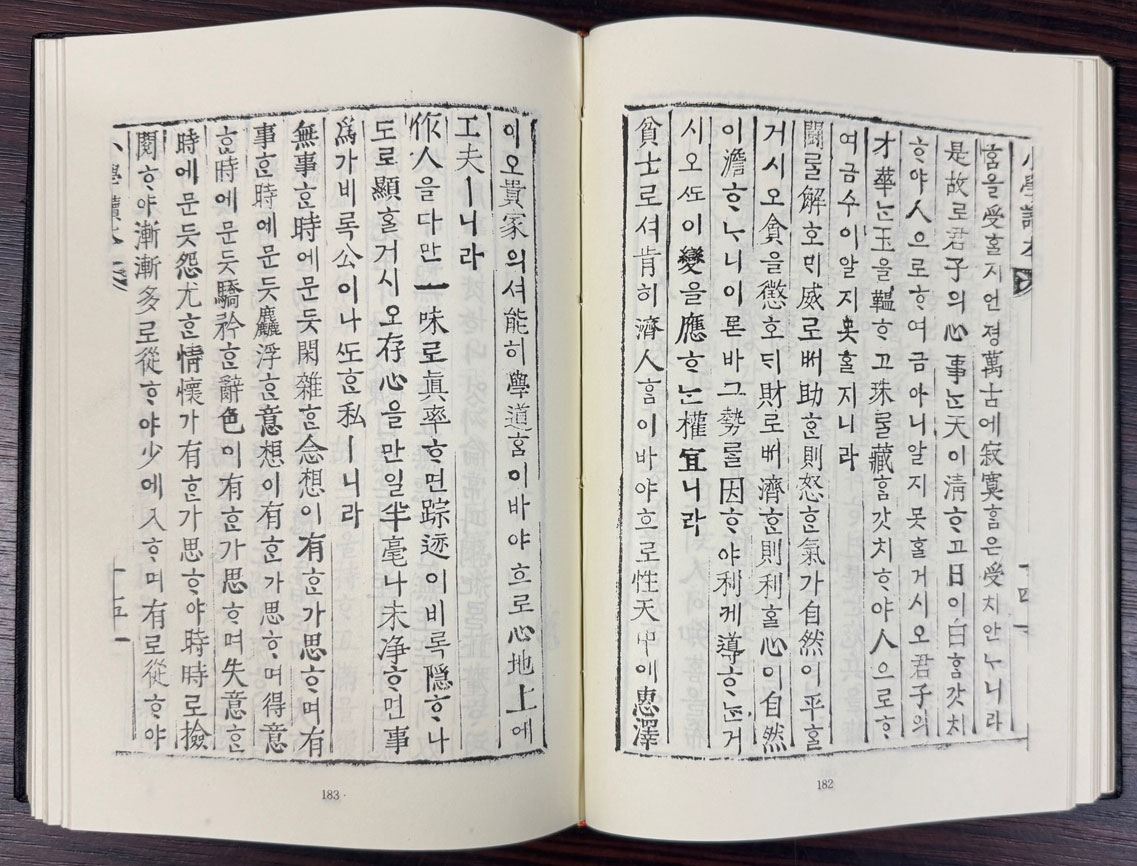 小學讀本 十四
ᄒᆞᆷ을受ᄒᆞᆯ지언졍萬古에寂寞ᄒᆞᆷ은受치안ᄂᆞ니라
是故로君子의心事ᄂᆞᆫ天이淸ᄒᆞ고日이白ᄒᆞᆷ갓치
ᄒᆞ야人으로ᄒᆞ여금아니알지못ᄒᆞᆯ거시오君子의
才華ᄂᆞᆫ玉을韞ᄒᆞ고珠ᄅᆞᆯ藏ᄒᆞᆷ갓치ᄒᆞ야人으로ᄒᆞ
여금수이알지못ᄒᆞᆯ지니라
鬪ᄅᆞᆯ解호ᄃᆡ威로ᄡᅥ助ᄒᆞᆫ則怒ᄒᆞᆫ氣가自然이平ᄒᆞᆯ
거시오貪을懲호ᄃᆡ財로ᄡᅥ濟ᄒᆞᆫ則利ᄒᆞᆯ心이自然
이澹ᄒᆞᄂᆞ니이른바그勢ᄅᆞᆯ因ᄒᆞ야利케導ᄒᆞᄂᆞᆫ거
시오ᄯᅩ이變을應ᄒᆞᄂᆞᆫ權宜니라
貧士로셔肯히濟人ᄒᆞᆷ이바야흐로性天中에惠澤
182
이오貴家의셔能히學道ᄒᆞᆷ이바야흐로心地上에
工夫ㅣ니라
作人을다만一味로眞率ᄒᆞ면踪迹이비록隱ᄒᆞ나
도로顯ᄒᆞᆯ거시오存心을만일半毫나未净ᄒᆞ면事
爲가비록公이나ᄯᅩᄒᆞᆫ私ㅣ니라
無事ᄒᆞᆫ時에문득閑雜ᄒᆞᆫ念想이有ᄒᆞᆫ가思ᄒᆞ며有
事ᄒᆞᆫ時에문득麤浮ᄒᆞᆫ意想이有ᄒᆞᆫ가思ᄒᆞ며得意
ᄒᆞᆫ時에문득驕矜ᄒᆞᆫ辭色이有ᄒᆞᆫ가思ᄒᆞ며失意ᄒᆞᆫ
時에문득怨尤ᄒᆞᆫ情懷가有ᄒᆞᆫ가思ᄒᆞ야時時로撿
閱ᄒᆞ야漸漸多로從ᄒᆞ야少에入ᄒᆞ며有로從ᄒᆞ야
小學讀本 十五
183